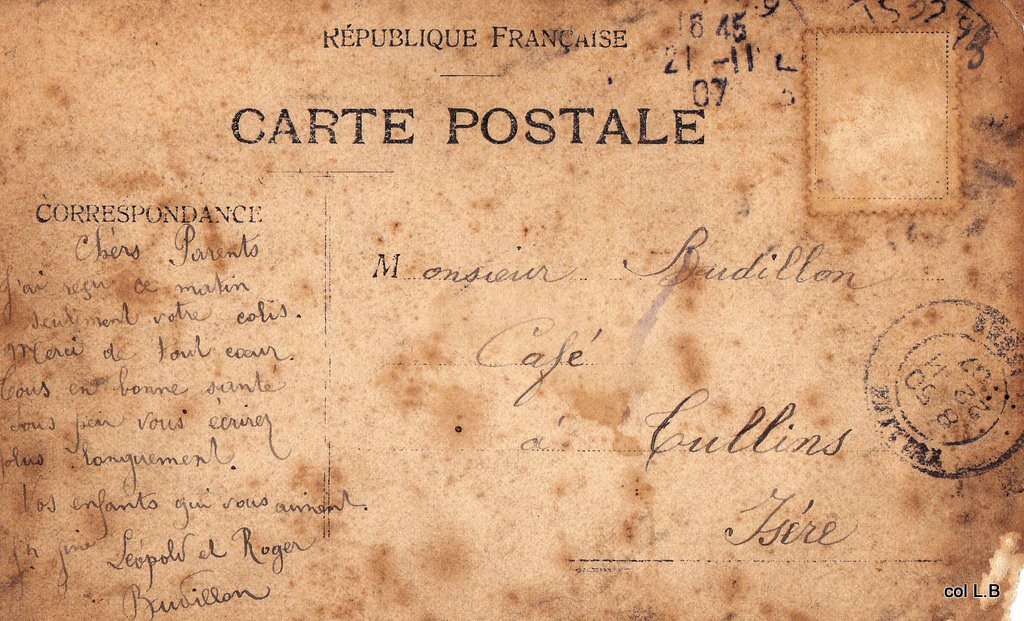 RÉPUBLIQUE FRANÇAISE
18 45
21 -11
07
CARTE POSTALE
CORRESPONDANCE
Chèrs Parents
J'ai reçu ce matin
seulement votre colis.
Merci de tout cœur.
Tous en bonne santé
sous peu vous écrirez
plus longuement.
Vos enfants qui vous aiment.
Léopold et Roger
Budillon
Monsieur Budillon
Café
à Tullins
Isère
col L.B